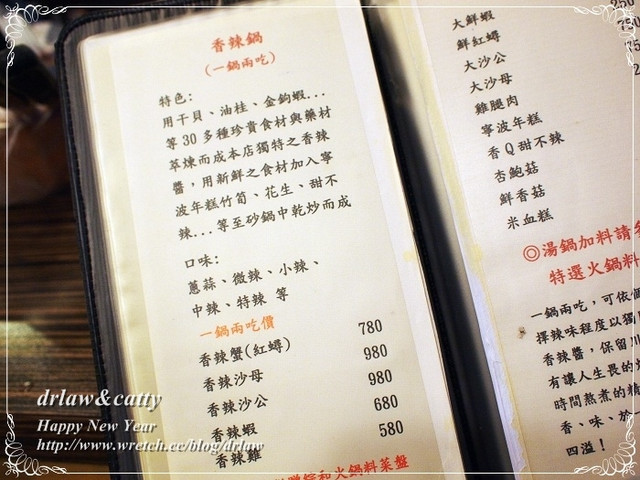 香辣鍋
(一鍋兩吃)
特色:
用干貝、油桂、金鉤蝦...
等30多種珍貴食材與藥材
萃煉而成本店獨特之香辣
醬,用新鮮之食材加入寧
波年糕竹筍、花生、甜不
辣...等至砂鍋中乾炒而成
口味:
蔥蒜、微辣、小辣、
中辣、特辣 等
一鍋兩吃價
香辣蟹(紅蟳) 780
香辣沙母 980
香辣沙公 980
香辣蝦 680
香辣雞 580
和火鍋料菜盤
大鮮蝦
鮮紅蟳
大沙公
大沙母
雞腿肉
寧波年糕
香Q甜不辣
杏鮑菇
鮮香菇
米血糕
250
◎湯鍋加料請參
特選火鍋料
一鍋兩吃,可依個
擇辣味程度以獨
香辣醬,保留川
有讓人生畏的
時間熬煮的精
香、味、於
四溢!
drlaw&catty
Happy New Year
http://www.wretch.cc/blog/drlaw